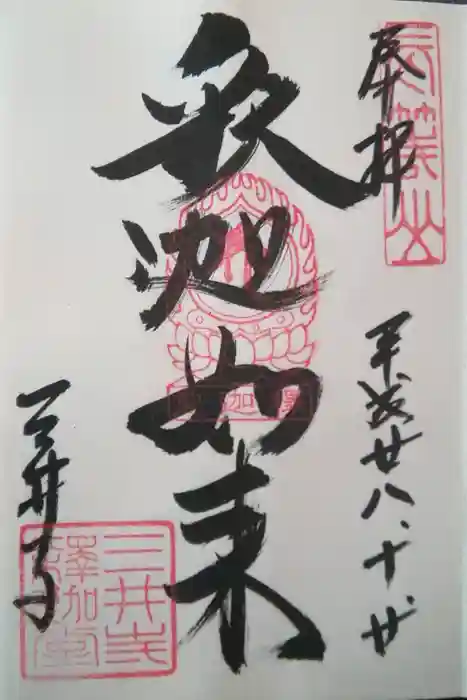 奉拝
長等山
平成廿八、十、廿
釈迦如来
三井寺
三井寺
釋迦堂